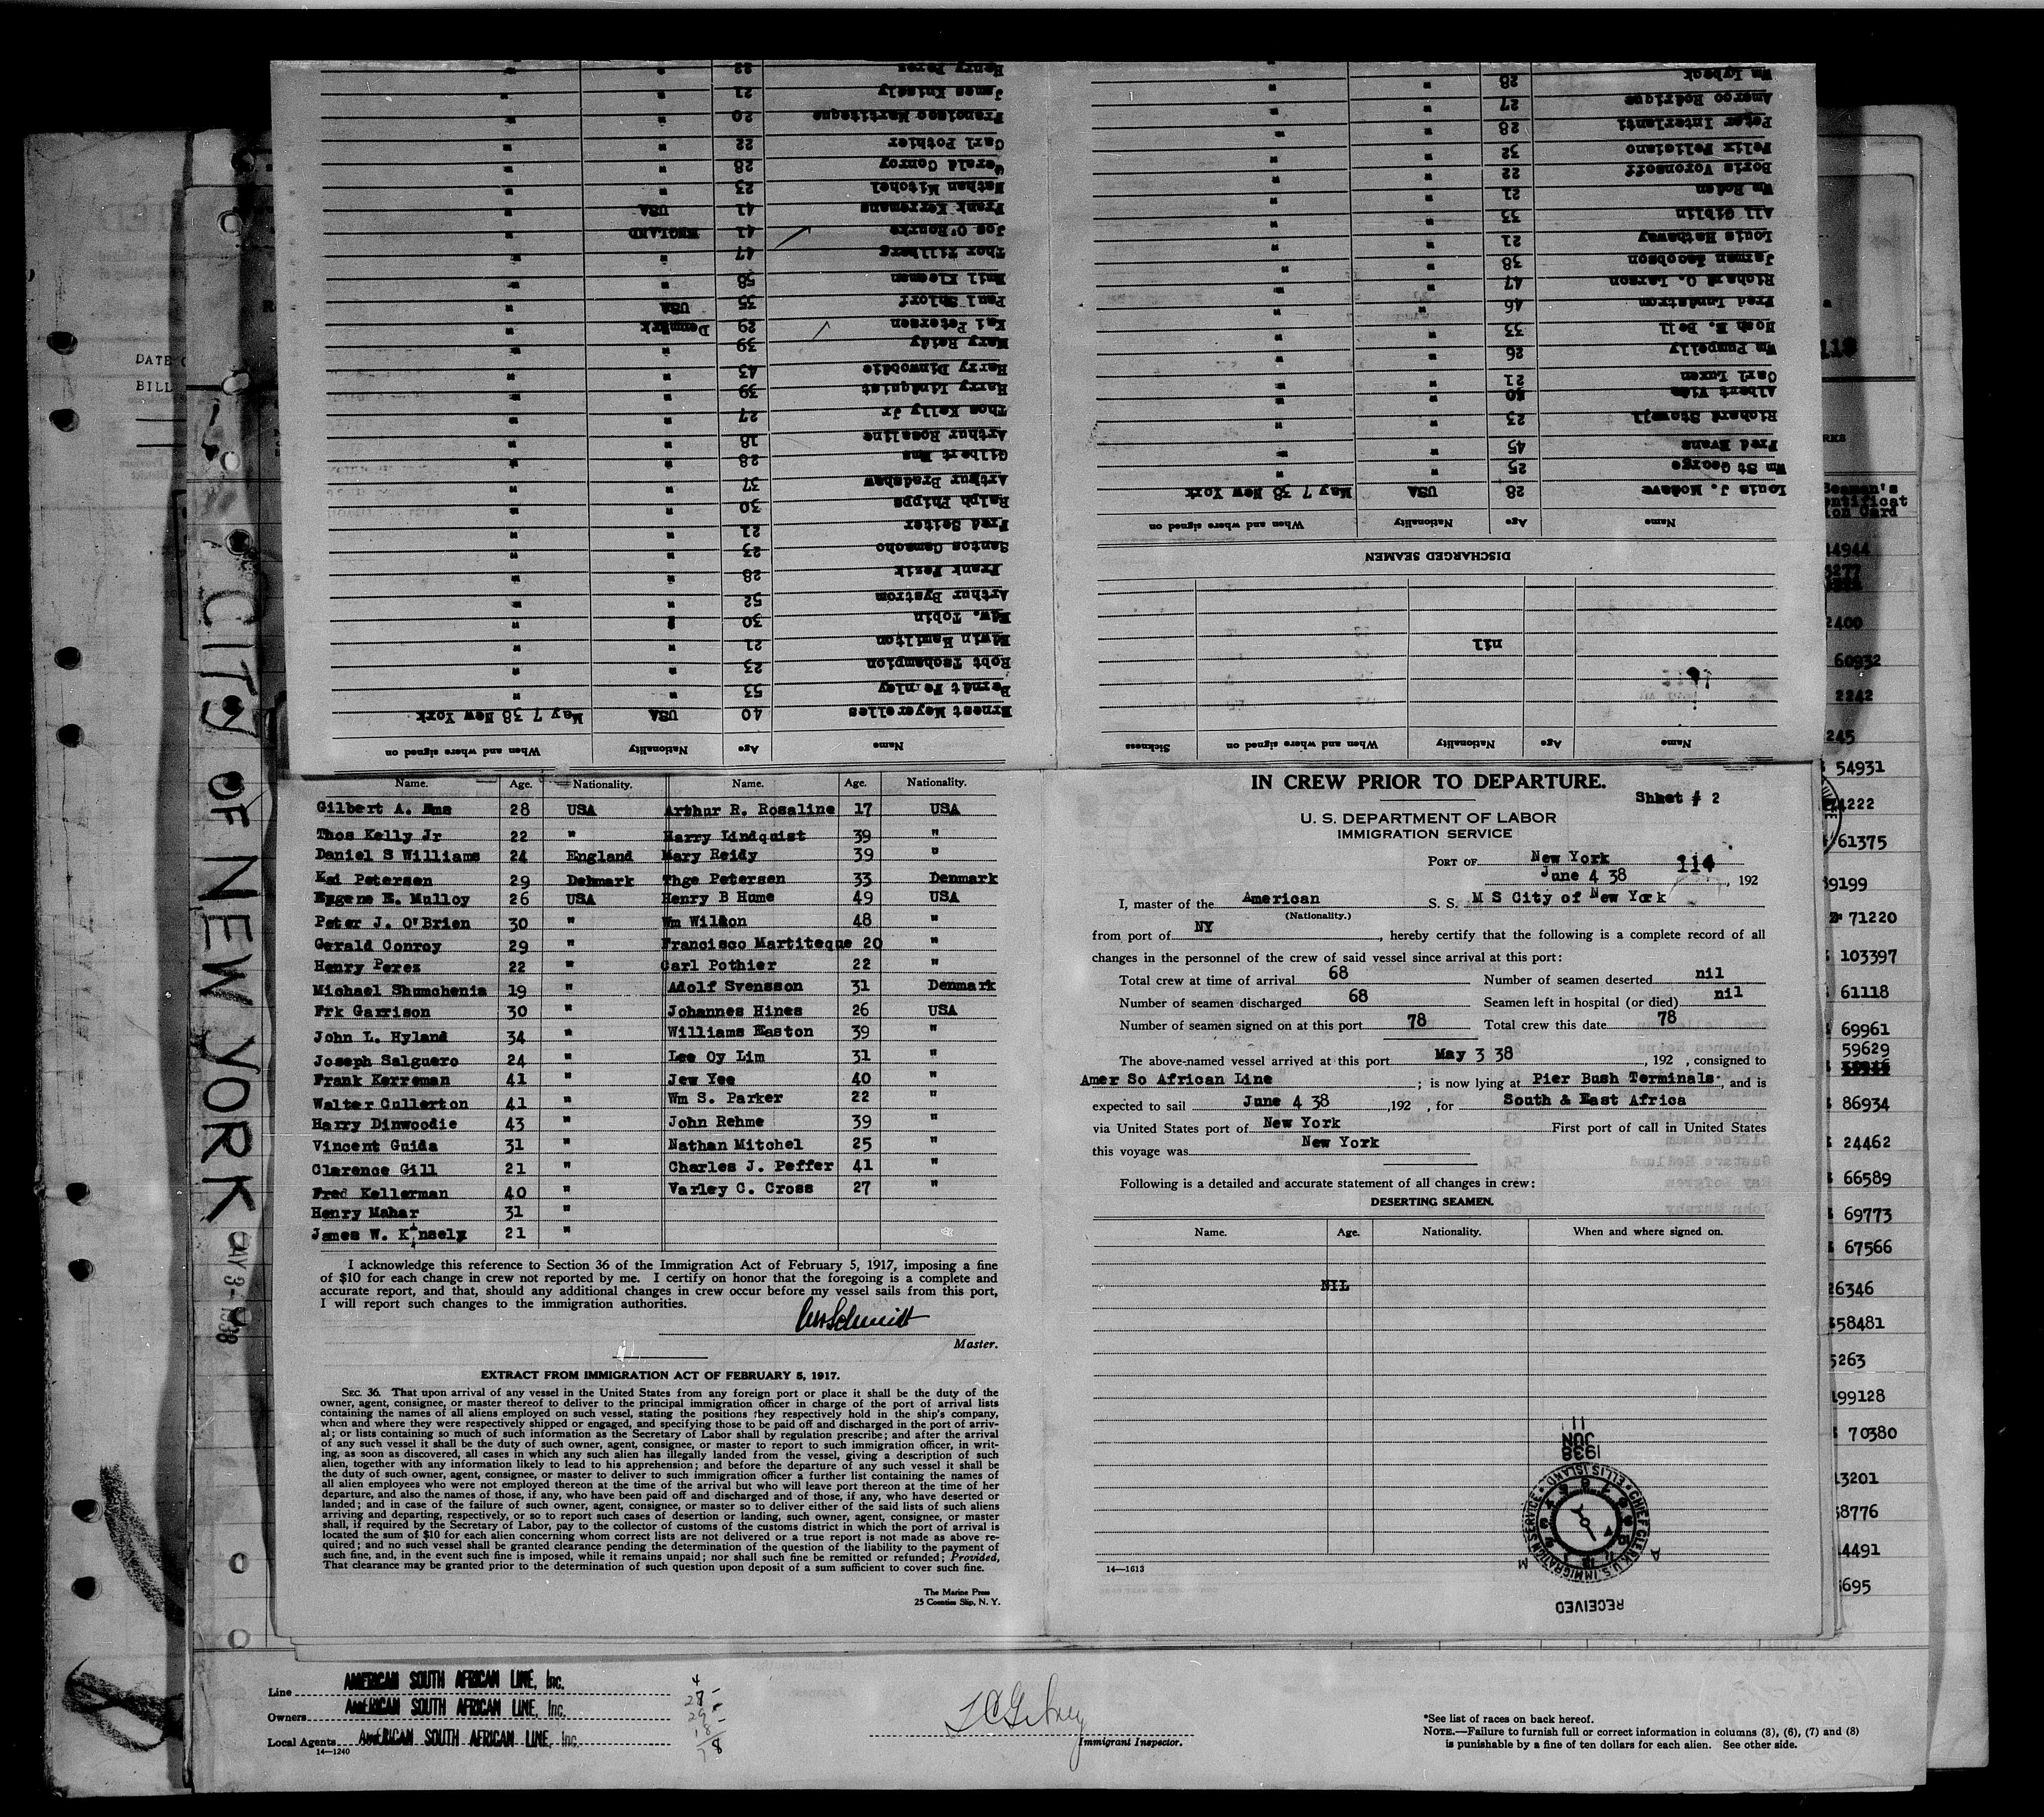 Henry Perez 22 " "
James Knisely 21 " "
Francisco Martiteque 20 " "
Carl Pothier 22 " "
Gerald Conroy 28 " "
Nathan Mitchel 23 " "
Frank Kerremans 41 USA "
Jos O'Rourke 41 ENGLAND "
Thor Tillberg 47 " "
Emil Klesmen 58 " "
Paul Schlorf 35 USA "
Kai Petersen 29 Denmark "
Mary Reidy 39 " "
Harry Dinwoodie 43 " "
Harry Lindquist 39 " "
Thos Kelly Jr 27 " "
Arthur Rosaline 18 " "
Gilbert Ems 28 " "
Arthur Bradshaw 37 " "
Ralph Phipps 30 " "
Fred Seiter 21 " "
Santos Camacho 23 " "
Frank Pezik 28 " "
Arthur Bystrom 52 " "
Edw. Tobin 30 " "
Edwin Hamilton 21 " "
Robt Tschampion 23 " "
Berndt Fernley 53 " "
Ernest Meyerelles 40 USA May 7 38 New York
Name Age Nationality When and where signed on
Wm Lybeck 28 " "
Amerco Rodrique 27 " "
Peter Interlanti 28 " "
Felix Feliciano 32 " "
Boris Voronsoff 22 " "
Wm Roden 21 " "
All Giblin 33 " "
Louis Hathaway 21 " "
Jarman Jacobson 38 " "
Richard O. Larson 47 " "
Fred Lundstrom 46 " "
Hosh E. Bell 33 " "
Wm Pumpelly 26 " "
Carl Luxen 21 " "
Albert Vide 30 " "
Richard Stowell 23 " "
Fred Evans 45 " "
Wm St George 25 " "
Louis J. Modave 28 USA May 7 38 New York
Name Age Nationality When and where signed on
DISCHARGED SEAMEN
nil
Name Age Nationality When and where signed on Sickness
DATE
BILL
CITY OF NEW YORK
MAY 3-1938
Name. Age. Nationality. Name. Age. Nationality.
Gilbert A. Ems 28 USA Arthur R. Rosaline 17 USA
Thos Kelly Jr 22 " Harry Lindquist 39 "
Daniel S Williams 24 England Mary Reidy 39 "
Kai Petersen 29 Denmark Thge Petersen 33 Denmark
Eugene E. Mulloy 26 USA Henry B Hume 49 USA
Peter J. O'Brien 30 " Wm Wilson 48 "
Gerald Conroy 29 " Francisco Martiteque 20 "
Henry Perez 22 " Carl Pothier 22 "
Michael Shumchenia 19 " Adolf Svensson 31 Denmark
Frk Garrison 30 " Johannes Hines 26 USA
John L. Hyland 34 " Williams Easton 39 "
Joseph Salguero 24 " Lee Oy Lim 31 "
Frank Kerreman 41 " Jew Yee 40 "
Walter Cullerton 41 " Wm S. Parker 22 "
Harry Dinwoodie 43 " John Rehme 39 "
Vincent Guida 31 " Nathan Mitchel 25 "
Clarence Gill 21 " Charles J. Peffer 41 "
Fred Kellerman 40 " Varley C. Cross 27 "
Henry Mahar 31 "
James W. Kinsely 21 "
I acknowledge this reference to Section 36 of the Immigration Act of February 5, 1917, imposing a fine
of $10 for each change in crew not reported by me. I certify on honor that the foregoing is a complete and
accurate report, and that, should any additional changes in crew occur before my vessel sails from this port,
I will report such changes to the immigration authorities.
Master.
EXTRACT FROM IMMIGRATION ACT OF FEBRUARY 5, 1917.
SEC. 36. That upon arrival of any vessel in the United States from any foreign port or place it shall be the duty of the
owner, agent, consignee, or master thereof to deliver to the principal immigration officer in charge of the port of arrival lists
containing the names of all aliens employed on such vessel, stating the positions they respectively hold in the ship's company,
when and where they were respectively shipped or engaged, and specifying those to be paid off and discharged in the port of arriv-
al; or lists containing so much of such information as the Secretary of Labor shall by regulation prescribe; and after the arrival
of any such vessel it shall be the duty of such owner, agent, consignee, or master to report to such immigration officer, in writ-
ing, as soon as discovered, all cases in which any such alien has illegally landed from the vessel, giving a description of such
alien, together with any information likely to lead to his apprehension; and before the departure of any such vessel it shall be
the duty of such owner, agent, consignee, or master to deliver to such immigration officer a further list containing the names of
all alien employees who were not employed thereon at the time of the arrival but who will leave port thereon at the time of her
departure, and also the names of those, if any, who have been paid off and discharged and of those, if any, who have deserted or
landed; and in case of the failure of such owner, agent, consignee, or master so to deliver either of the said lists of such aliens
arriving and departing, respectively, or so to report such cases of desertion or landing, such owner, agent, consignee, or master
shall, if required by the Secretary of Labor, pay to the collector of customs of the customs district in which the port of arrival is
located the sum of $10 for each alien concerning whom correct lists are not delivered or a true report is not made as above re-
quired; and no such vessel shall be granted clearance pending the determination of the question of the liability to the payment of
such fine, and, in the event such fine is imposed, while it remains unpaid; nor shall such fine be remitted or refunded; Provided,
That clearance may be granted prior to the determination of such question upon deposit of a sum sufficient to cover such fine.
The Marine Press
25 Coenties Slip, N. Y.
IN CREW PRIOR TO DEPARTURE.
Sheet # 2
U. S. DEPARTMENT OF LABOR
IMMIGRATION SERVICE
PORT OF New York 114
June 4 38, 192
I, master of the American S. S. M S City of New York
(Nationality.)
from port of NY, hereby certify that the following is a complete record of all
changes in the personnel of the crew of said vessel since arrival at this port:
Total crew at time of arrival 68 Number of seamen deserted nil
Number of seamen discharged 68 Seamen left in hospital (or died) nil
Number of seamen signed on at this port 78 Total crew this date 78
The above-named vessel arrived at this port May 3 38, 192 , consigned to
Amer So African Line; is now lying at Pier Bush Terminals, and is
expected to sail June 4 38 ,192 , for South & East Africa
via United States port of New York First port of call in United States
this voyage was New York
Following is a detailed and accurate statement of all changes in crew:
DESERTING SEAMEN.
Name. Age. Nationality. When and where signed on.
NIL
14—1613
1938
JUN
11
CHIEF CLERK U.S. IMMIGRATION SERVICE · ELLIS ISLAND
A M
RECEIVED
118
RKS
Seaman's
entificat
ion Card
14944
3277
2400
60932
2242
245
54931
74222
61375
9199
71220
103397
61118
69961
59629
86934
24462
66589
69773
67566
26346
358481
5263
199128
70380
13201
38776
4491
695
Line AMERICAN SOUTH AFRICAN LINE, Inc.
Owners AMERICAN SOUTH AFRICAN LINE, Inc.
Local Agents AMERICAN SOUTH AFRICAN LINE, Inc.
14—1240
4
28
29
18
78
Immigrant Inspector.
*See list of races on back hereof.
NOTE.—Failure to furnish full or correct information in columns (3), (6), (7) and (8)
is punishable by a fine of ten dollars for each alien. See other side.